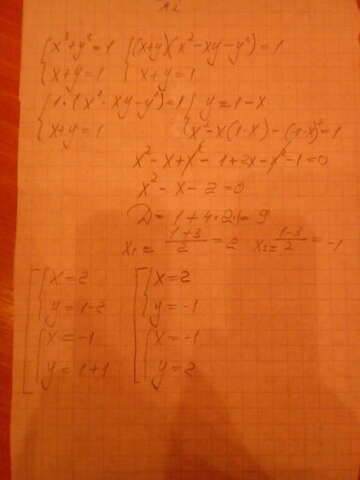 №2
{x³+y³=1 {(x+y)(x²-xy-y²)=1
{x+y=1 {x+y=1
{1·(x²-xy-y²)=1 {y=1-x
{x+y=1 {x²-x(1-x)-(1-x)²=1
x²-x+x²-1+2x-x²-1=0
x²-x-2=0
D=1+4·2=9
x₁=(1+3)/2=2 x₂=(1-3)/2=-1
[{x=2 [{x=2
{y=1-2 {y=-1
{x=-1 {x=-1
{y=1+1 {y=2